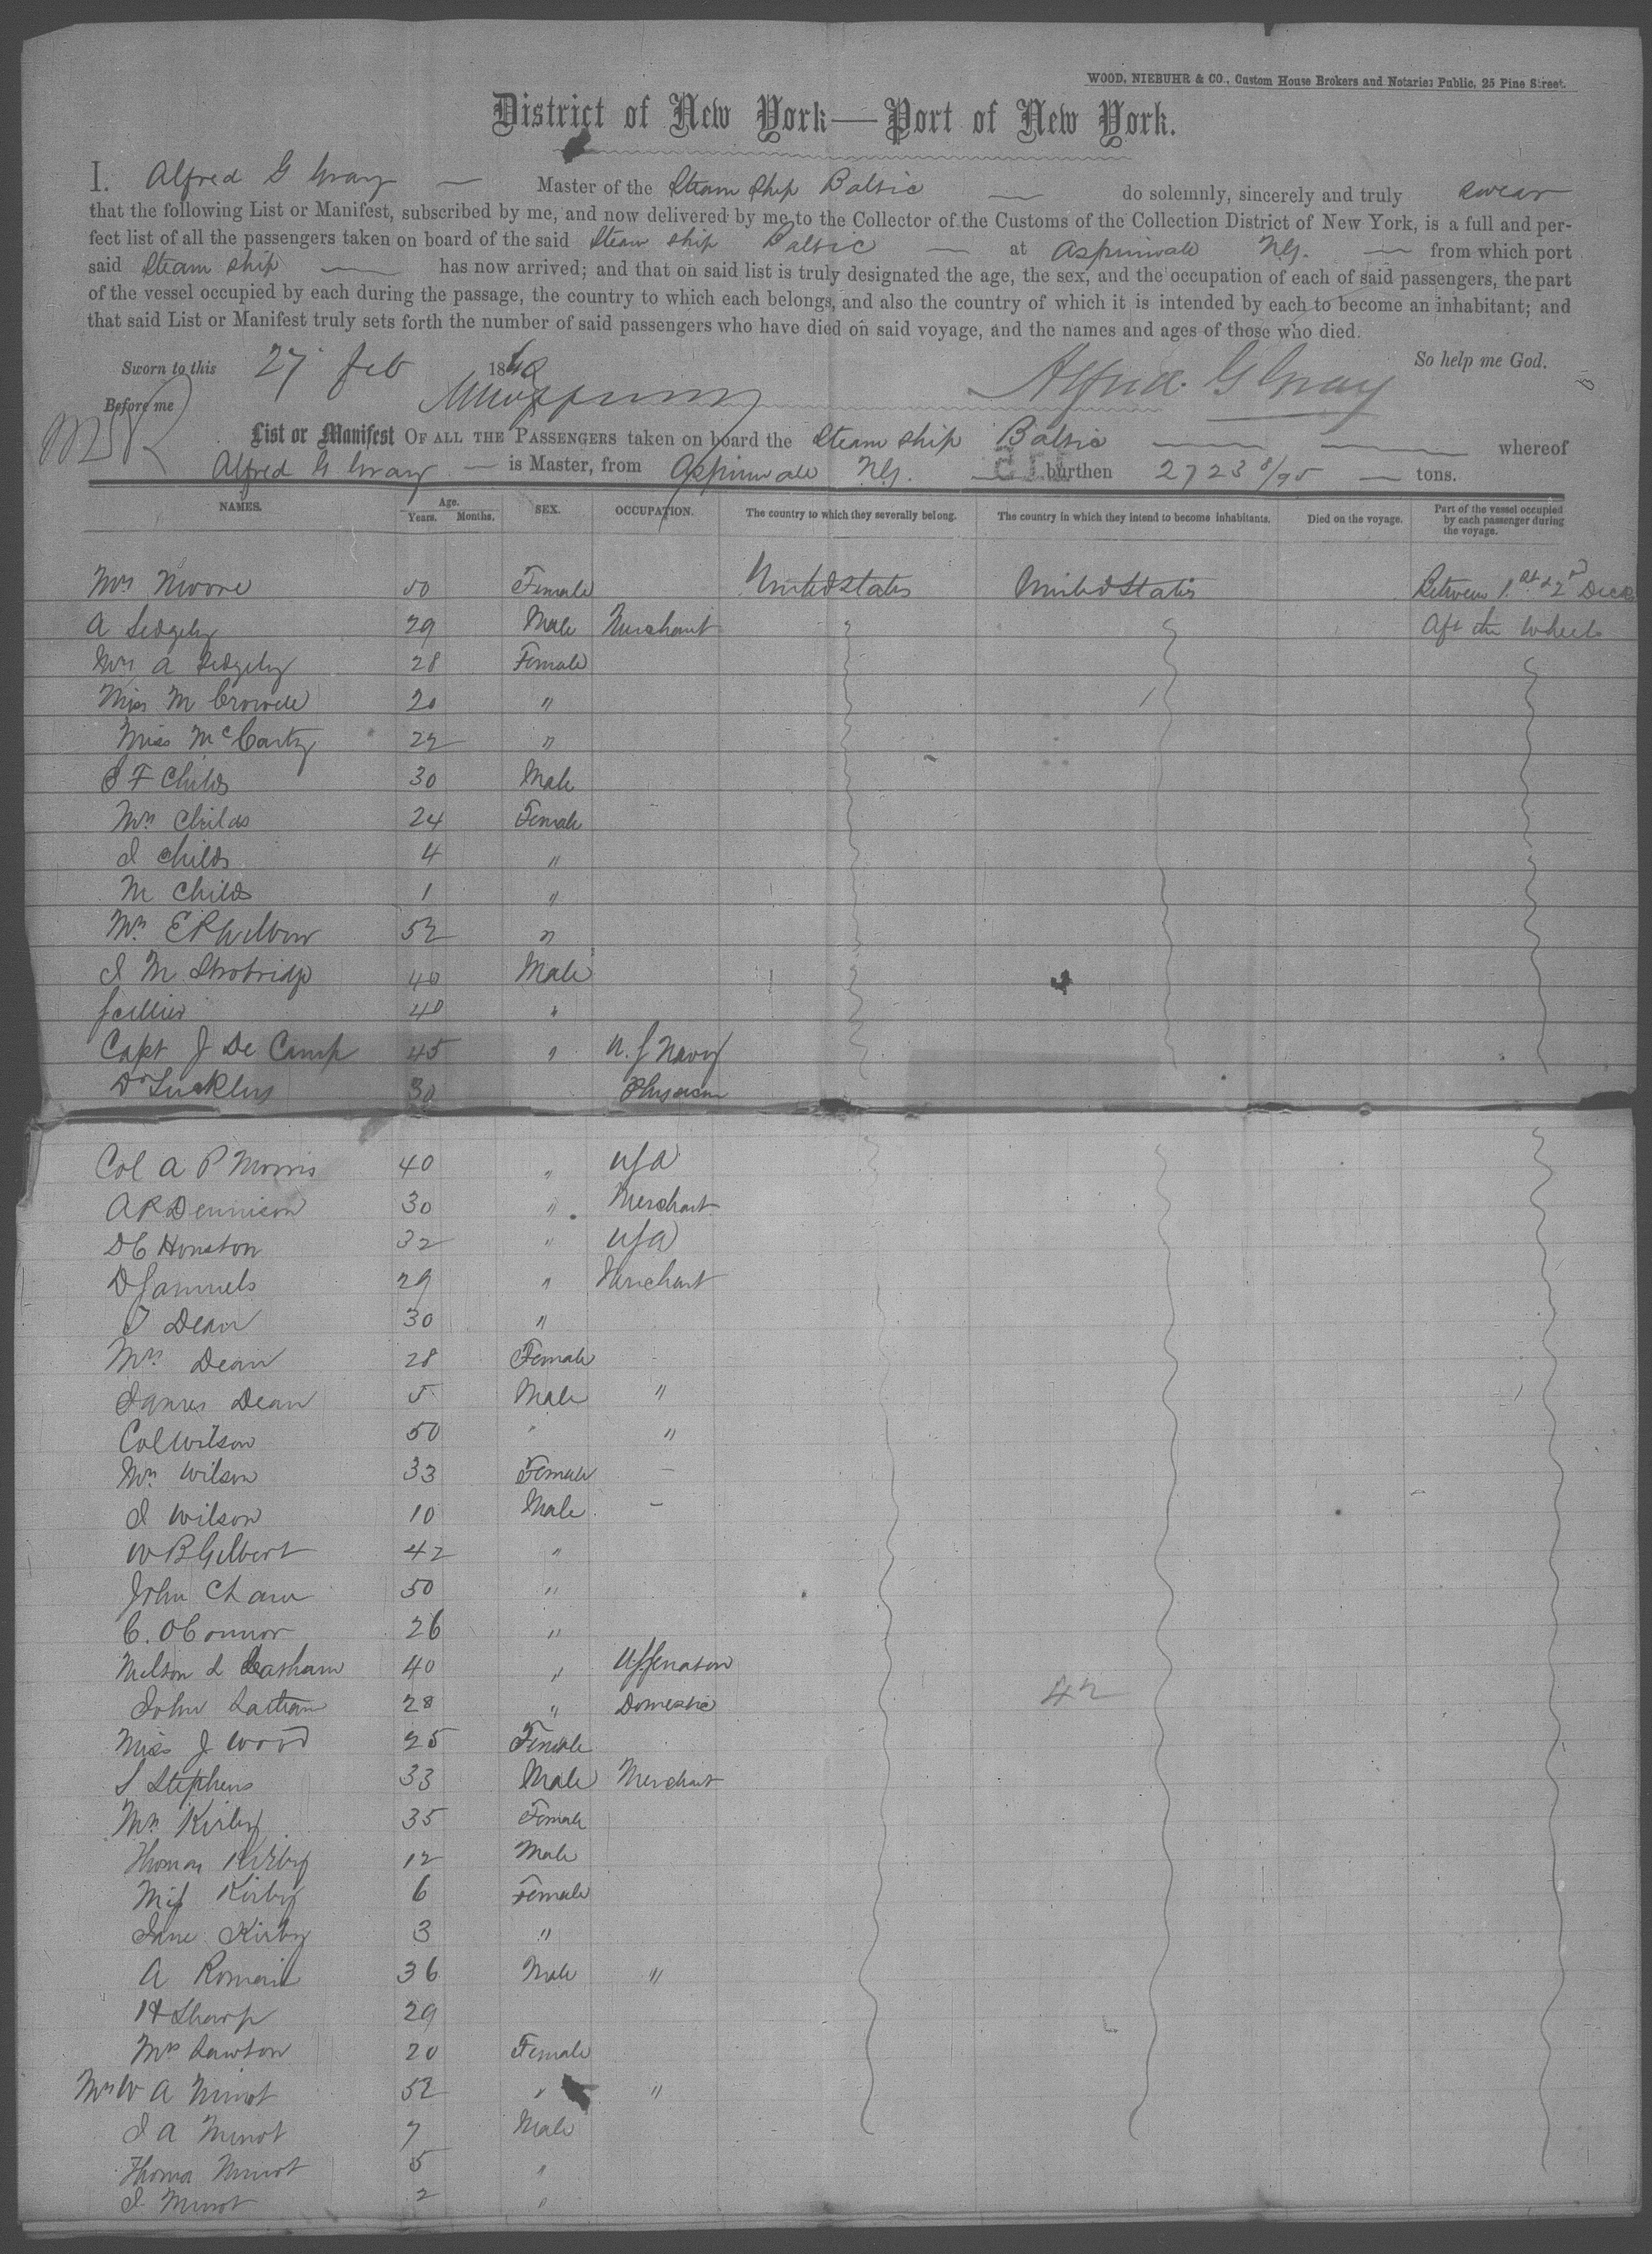 WOOD, NIEBUHR & CO., Custom House Brokers and Notaries Public, 25 Pine Street.
District of New York—Port of New York.
I. Alfred G Gray — Master of the Steam Ship Baltic — do solemnly, sincerely and truly swear
that the following List or Manifest, subscribed by me, and now delivered by me to the Collector of the Customs of the Collection District of New York, is a full and per-
fect list of all the passengers taken on board of the said Steam Ship Baltic — at Aspinwall N.G. — from which port
said Steam Ship — has now arrived; and that on said list is truly designated the age, the sex, and the occupation of each of said passengers, the part
of the vessel occupied by each during the passage, the country to which each belongs, and also the country of which it is intended by each to become an inhabitant; and
that said List or Manifest truly sets forth the number of said passengers who have died on said voyage, and the names and ages of those who died.
Sworn to this 27 Feb 1860 So help me God.
Before me Alfred G Gray
List or Manifest OF ALL THE PASSENGERS taken on board the Steam Ship Baltic — — whereof
Alfred G Gray — is Master, from Aspinwall N.G. — burthen 2723 8/95 — tons.
NAMES. Age. Years. Months. SEX. OCCUPATION. The country to which they severally belong. The country in which they intend to become inhabitants. Died on the voyage. Part of the vessel occupied by each passenger during the voyage.
Mrs Moore 50 Female United States United States Between 1st & 2nd Deck
A Sedgely 29 Male Merchant Aft the Wheels
Mrs A Sedgely 28 Female
Miss M Crowell 20 "
Miss McCarty 22 "
S F Childs 30 Male
Mrs Childs 24 Female
I Childs 4 "
M Childs 1 "
Mrs E R Wilbur 52 "
I M Strobridge 40 Male
40 "
Capt J De Camp 45 " U.S Navy
Dr 30 Physician
Col A P Morris 40 " USA
A R Dennison 30 " Merchant
D C Houston 32 " USA
D Samuels 29 " Merchant
T Dean 30 "
Mrs Dean 28 Female
James Dean 5 Male "
Col Wilson 50 " "
Mrs Wilson 33 Female —
I Wilson 10 Male —
W B Gilbert 42 "
John Chaw 50 "
C. OConnor 26 "
40 " US Senator
John 28 " Domestic 42
Miss J Wood 25 Female
S Stephens 33 Male Merchant
Mrs Kirby 35 Female
Thomas Kirby 12 Male
Miss Kirby 6 Female
Jane Kirby 3 "
A Romain 36 Male "
H Sharp 29
Mrs Lawton 20 Female
Mrs W A Minot 52 " "
I A Minot 7 Male
Thomas Minot 5 "
I Minot 2 "